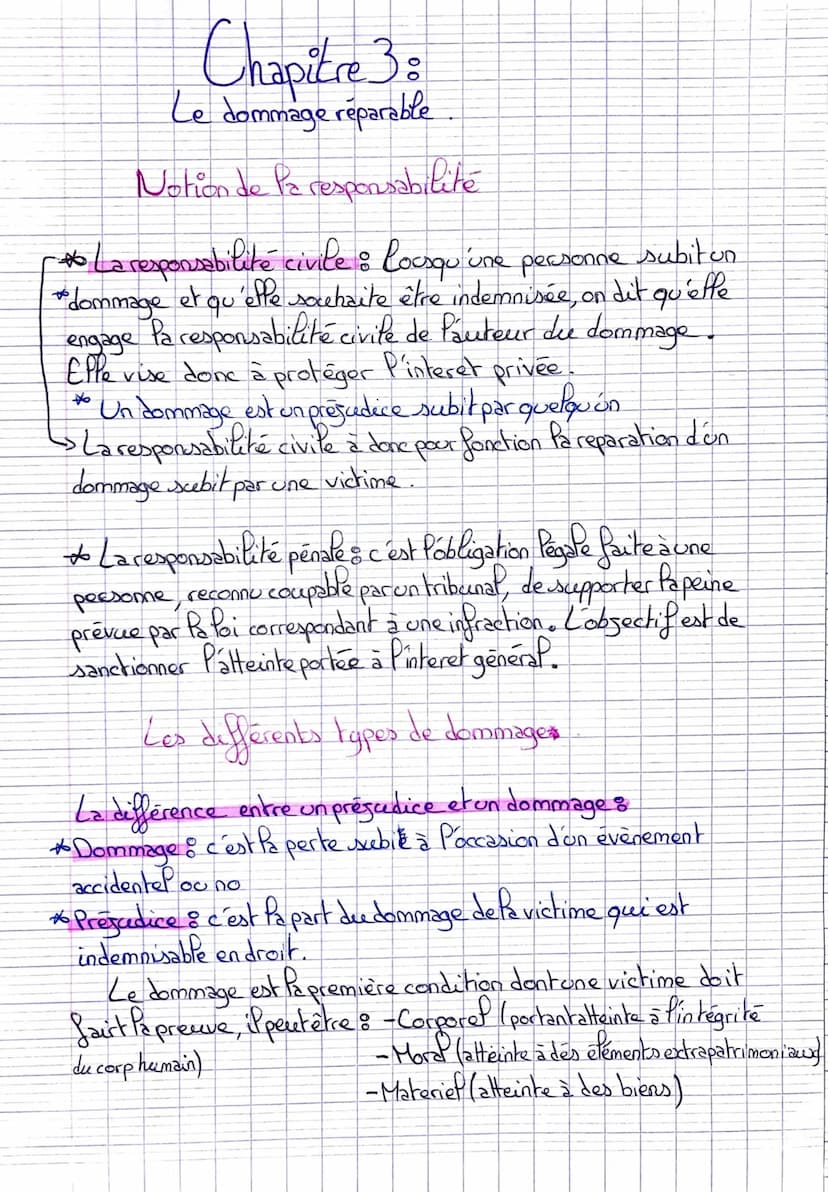 Chapitre 3 :
Le dommage réparable.
Notion de la responsabilité
* La responsabilité civile : lorsqu'une personne subit un
* dommage et qu'elle souhaite être indemnisée, on dit qu'elle
engage la responsabilité civile de l'auteur du dommage.
Elle vise donc à protéger l'interet privée.
* Un dommage est un préjudice subit par quelqu'un
→ La responsabilité civile à donc pour fonction la reparation d'un
dommage subit par une victime.
* La responsabilité pénale : c'est l'obligation légale faite à une
personne, reconnu coupable par un tribunal, de supporter la peine
prévue par la loi correspondant à une infraction. L'objectif est de
sanctionner l'atteinte portée à l'interet général.
Les différents types de dommages
La différence entre un préjudice et un dommage :
* Dommage : c'est la perte subit à l'occasion d'un évènement
accidentel ou no
* Préjudice : c'est la part du dommage de la victime qui est
indemnisable en droit.
Le dommage est la première condition dont une victime doit
fairt la preuve, il peut être : - Corporel (portant atteinte à l'intégrité
du corp humain)
- Moral (atteinte à des éléments extrapatrimoniaux)
- Materiel (atteinte à des biens)